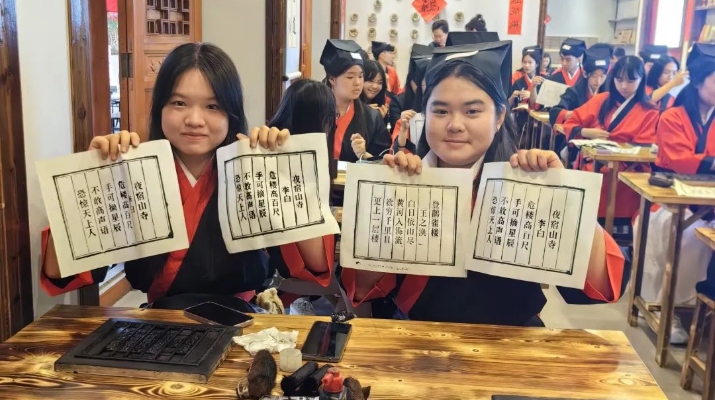 夜宿山寺
危楼高百尺
手可摘星辰
不敢高声语
恐惊天上人
夜宿山寺
李白
危楼高百尺
手可摘星辰
不敢高声语
恐惊天上人
登鹳雀楼
王之涣
白日依山尽
黄河入海流
欲穷千里目
更上一层楼
夜宿山寺
李白
危楼高百尺
手可摘星辰
不敢高声语
恐惊天上人